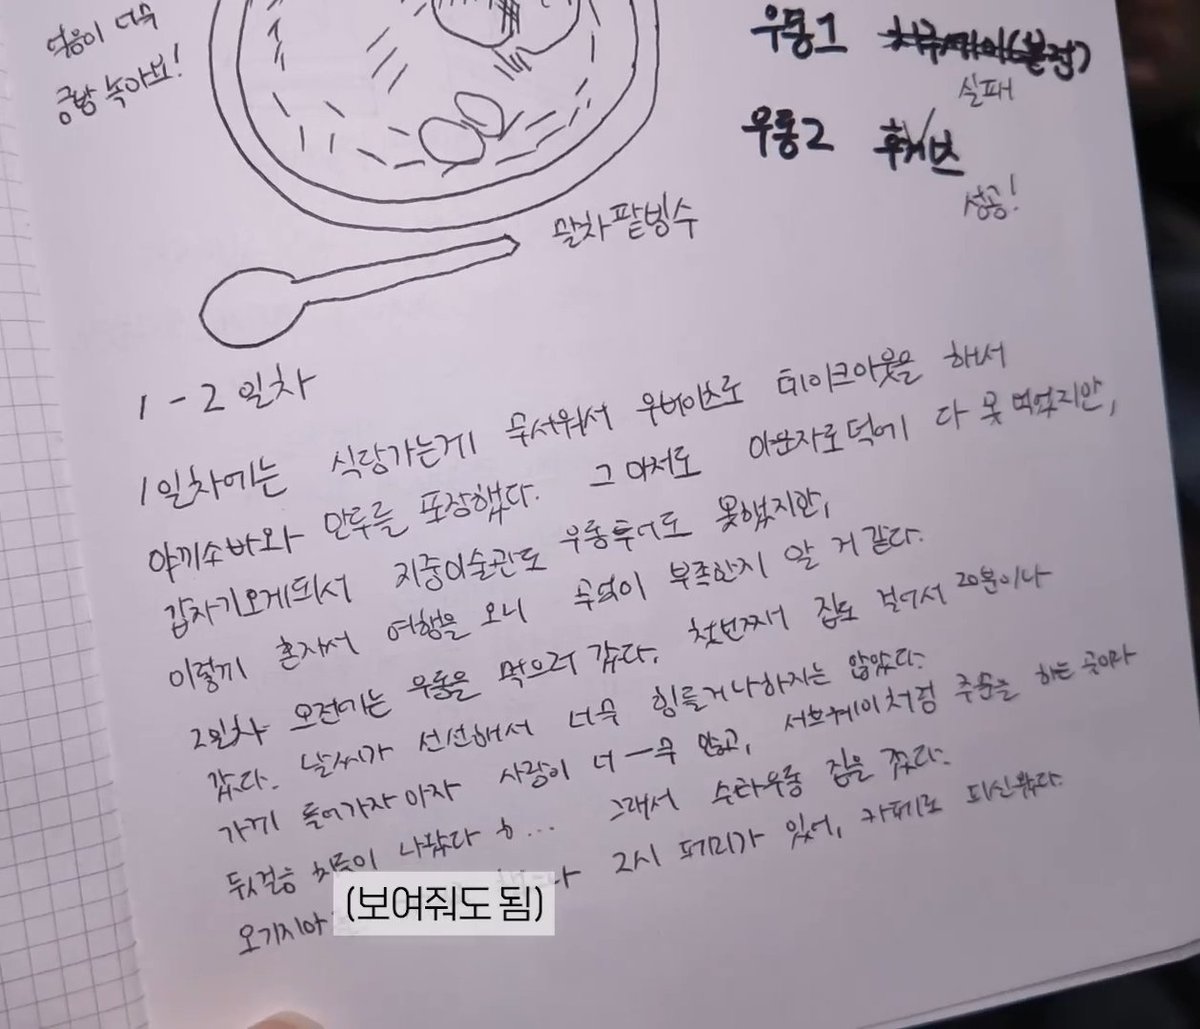 얼음이 너무
금방 녹아요!
우동1
실패
우동2
성공!
말차팥빙수
1-2일차
1일차에는 식당가는게 무서워서 우버이츠로 테이크아웃을 해서
야끼소바와 만두를 포장했다. 그마저도 다 못 먹었지만,
갑자기오게되서 지중미술관도 우동투어도 못했지만,
이렇게 혼자서 여행을 오니 부족한지 알 거 같다.
2일차 오전에는 우동을 먹으러 갔다. 첫번째 집도 걸어서 20분이나
갔다. 날씨가 선선해서 너무 힘들거나하지는 않았다.
가게 들어가자마자 사람이 너-무 많고, 서브웨이처럼 주문을 하는 곳이라
뒷걸음 나왔다 ㅎ... 그래서 수타우동 집을 갔다.
2시 까지 있어, 카페로 피신왔다.
(보여줘도 됨)